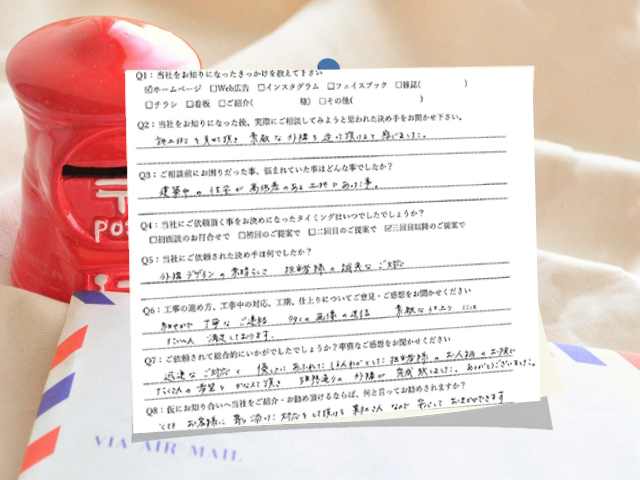 Q1：当社をお知りになったきっかけを教えて下さい
☑ホームページ □Web広告 □インスタグラム □フェイスブック □雑誌( )
□チラシ □看板 □ご紹介( 様) □その他( )
Q2：当社をお知りになった後、実際にご相談してみようと思われた決め手をお聞かせ下さい。
施工例を見せて頂き 素敵な外構を造って頂けると感じました。
Q3：ご相談前にお困りだった事、悩まれていた事はどんな事でしたか？
建築中の住宅が高低差のある土地であった事。
Q4：当社にご依頼頂く事をお決めになったタイミングはいつでしたでしょうか？
□初面談のお打合せで □初回のご提案で □二回目のご提案で ☑三回目以降のご提案で
Q5：当社にご依頼された決め手は何でしたか？
外構デザインの素晴らしさ 担当者様の誠実なご対応
Q6：工事の進め方、工事中の対応、工期、仕上りについてご意見・ご感想をお聞かせください
丁寧なご連絡 画像の送信 素敵な仕上りには
満足しております。
Q7：ご依頼されて総合的にいかがでしたでしょうか？率直なご感想をお聞かせください
迅速なご対応と 優しさにあふれた 担当者様のお人柄のお陰で
たくさんの希望をかなえて頂き 理想通りの外構が完成致しました。ありがとうございました。
Q8：仮にお知り合いへ当社をご紹介・お勧め頂けるならば、何と言ってお勧めされますか？
とてもお客様に寄り添った対応をして頂ける 業者さんなので 安心しておまかせできます
POS
VIA AIR MAIL